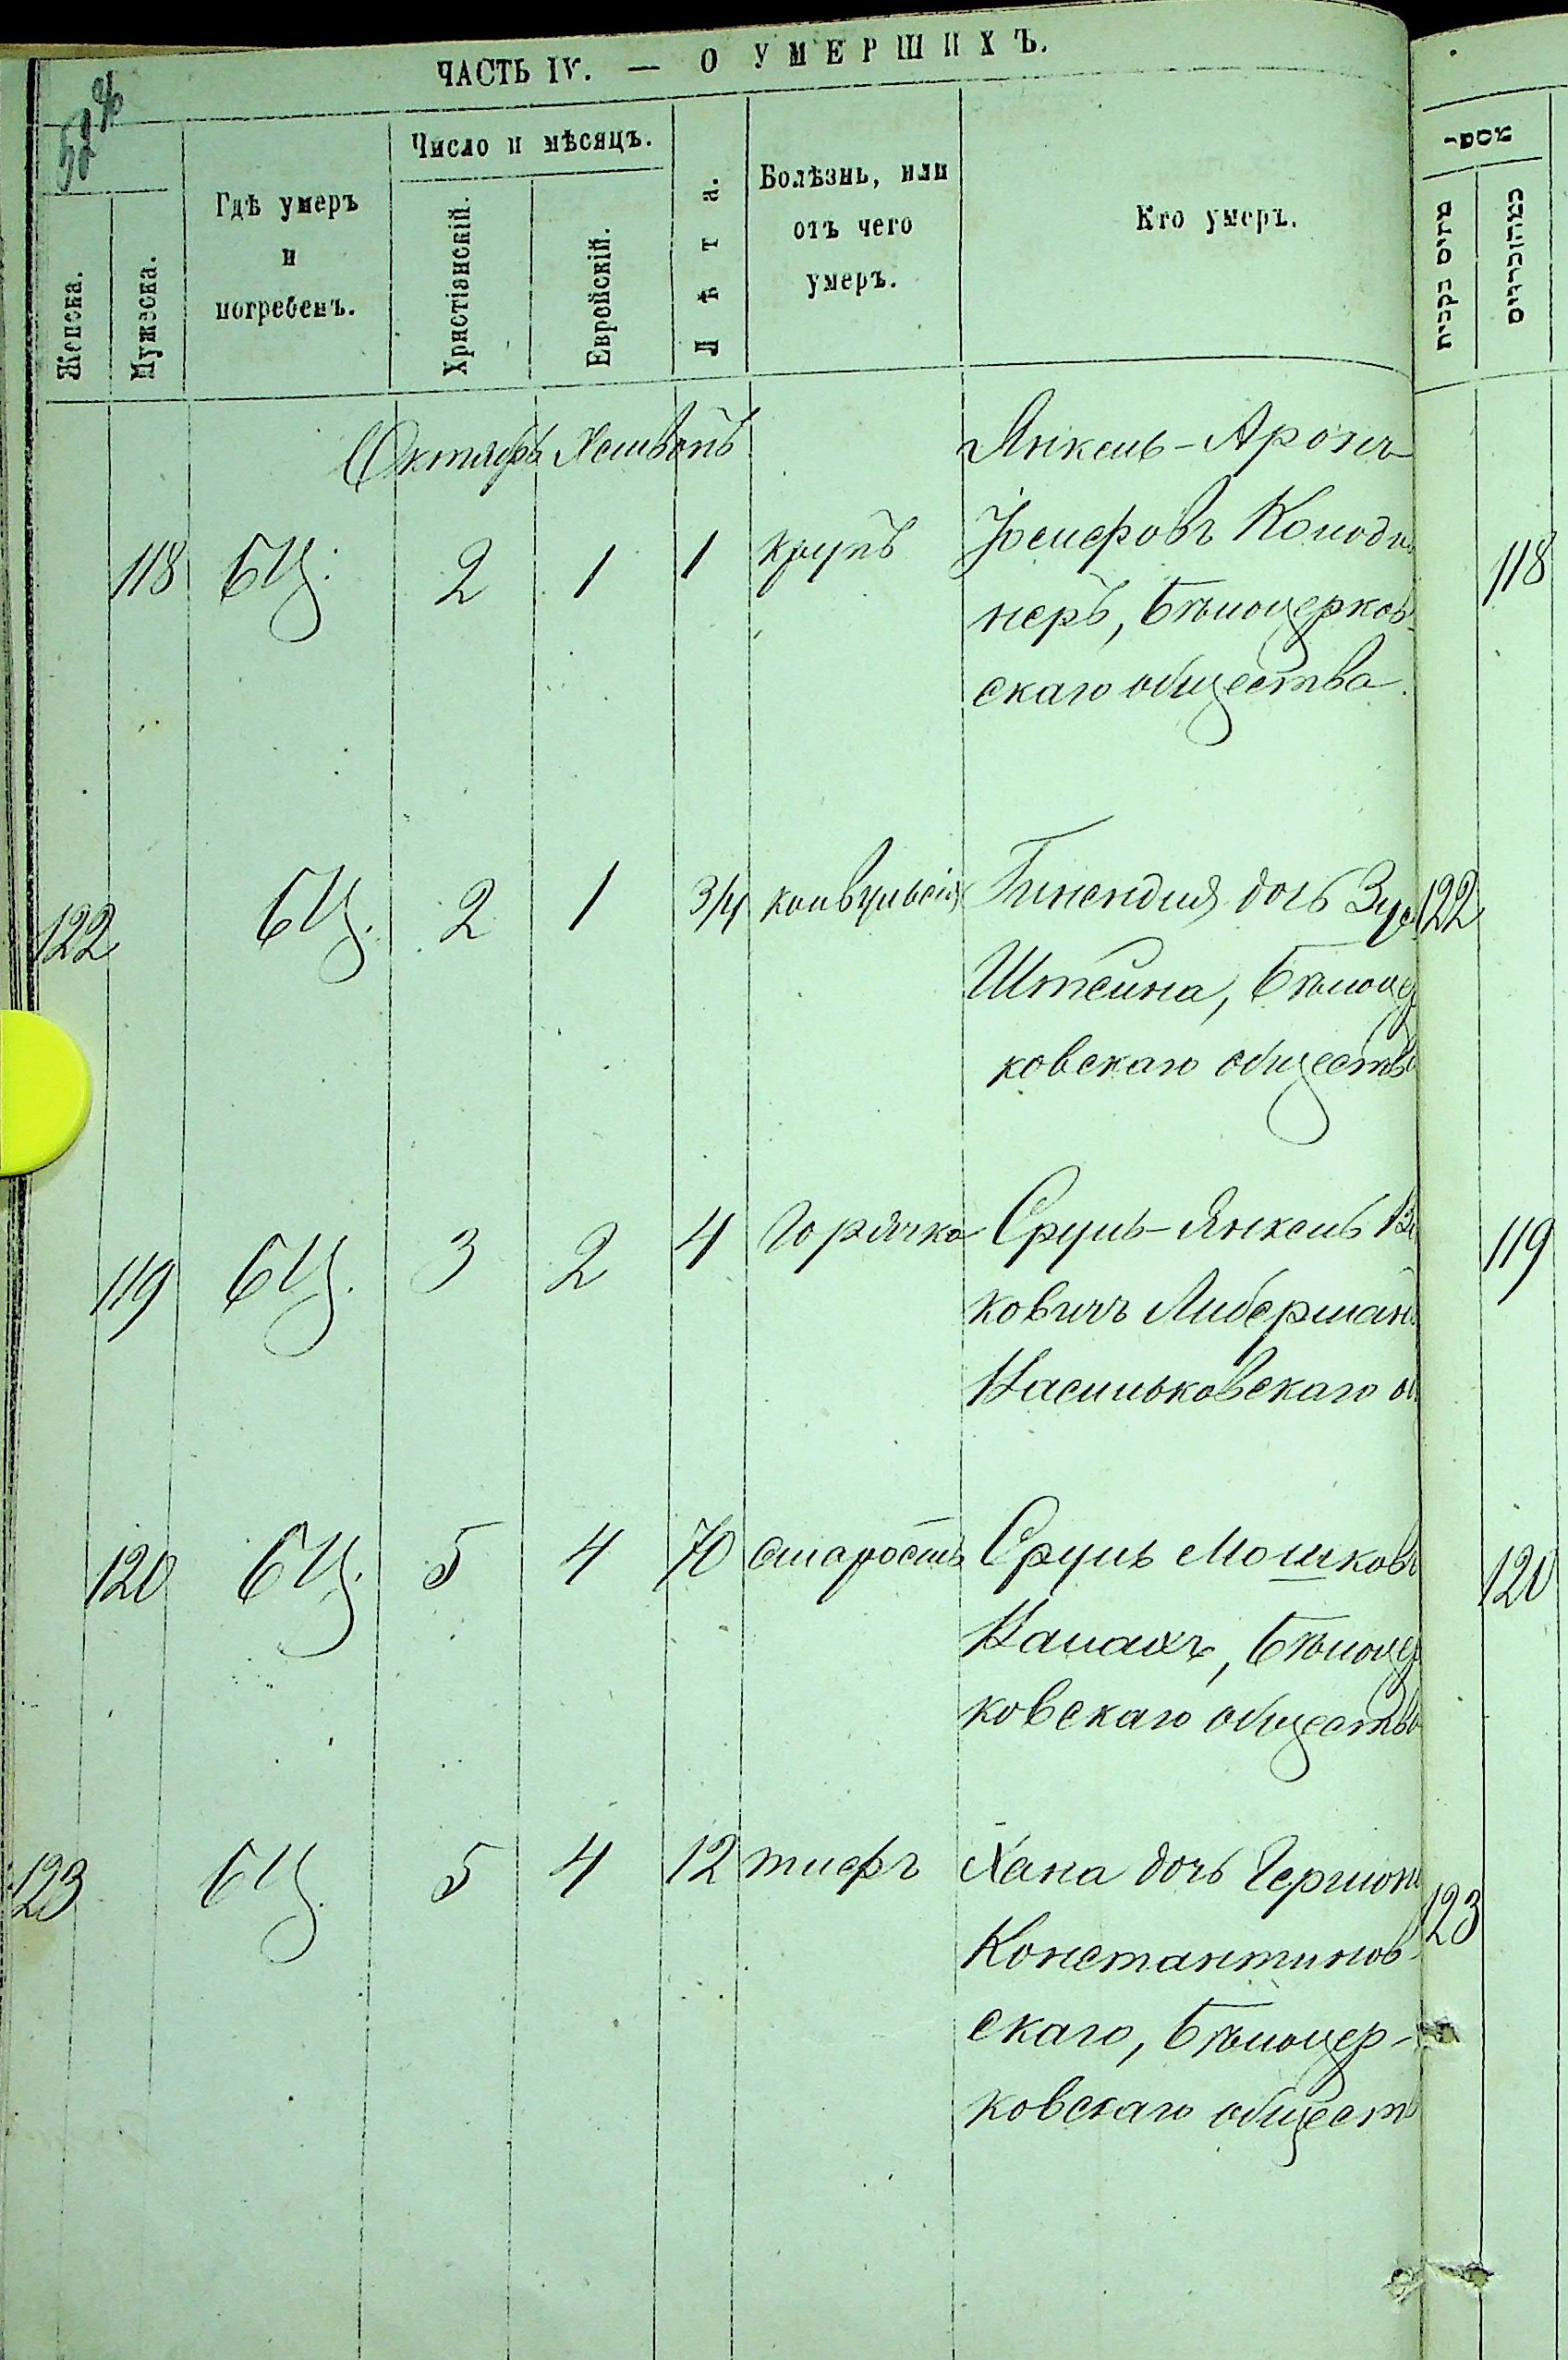 ЧАСТЬ IV. — О УМЕРШИХЪ.
Женска.
Мужеска.
Гдѣ умеръ
и
погребенъ.
Число и мѣсяцъ.
Христіянскій.
Еврейскій.
Лѣта.
Болѣзнь, или
отъ чего
умеръ.
Кто умеръ.
מתים
נקבות
זכרים
Октябрь Хешвонъ
Янкель-Аронъ
118 БЦ. 2 1 1 крупъ Іосифовъ
неръ, Бѣлоцерков-
скаго общества.
118
122 БЦ. 2 1 3/4 конвульсія дочь Зус
Штейна, Бѣлоцер
ковскаго общества
122
119 БЦ. 3 2 4 Горячка Сруль-Янкель
ковичъ Либерманъ
Васильковскаго о
119
120 БЦ. 5 4 70 старость Сруль Мошковъ
Бѣлоцер
ковскаго общества
120
123 БЦ. 5 4 12 тифъ Хана дочь Гершона
Константинов
скаго, Бѣлоцер-
ковскаго общест
123